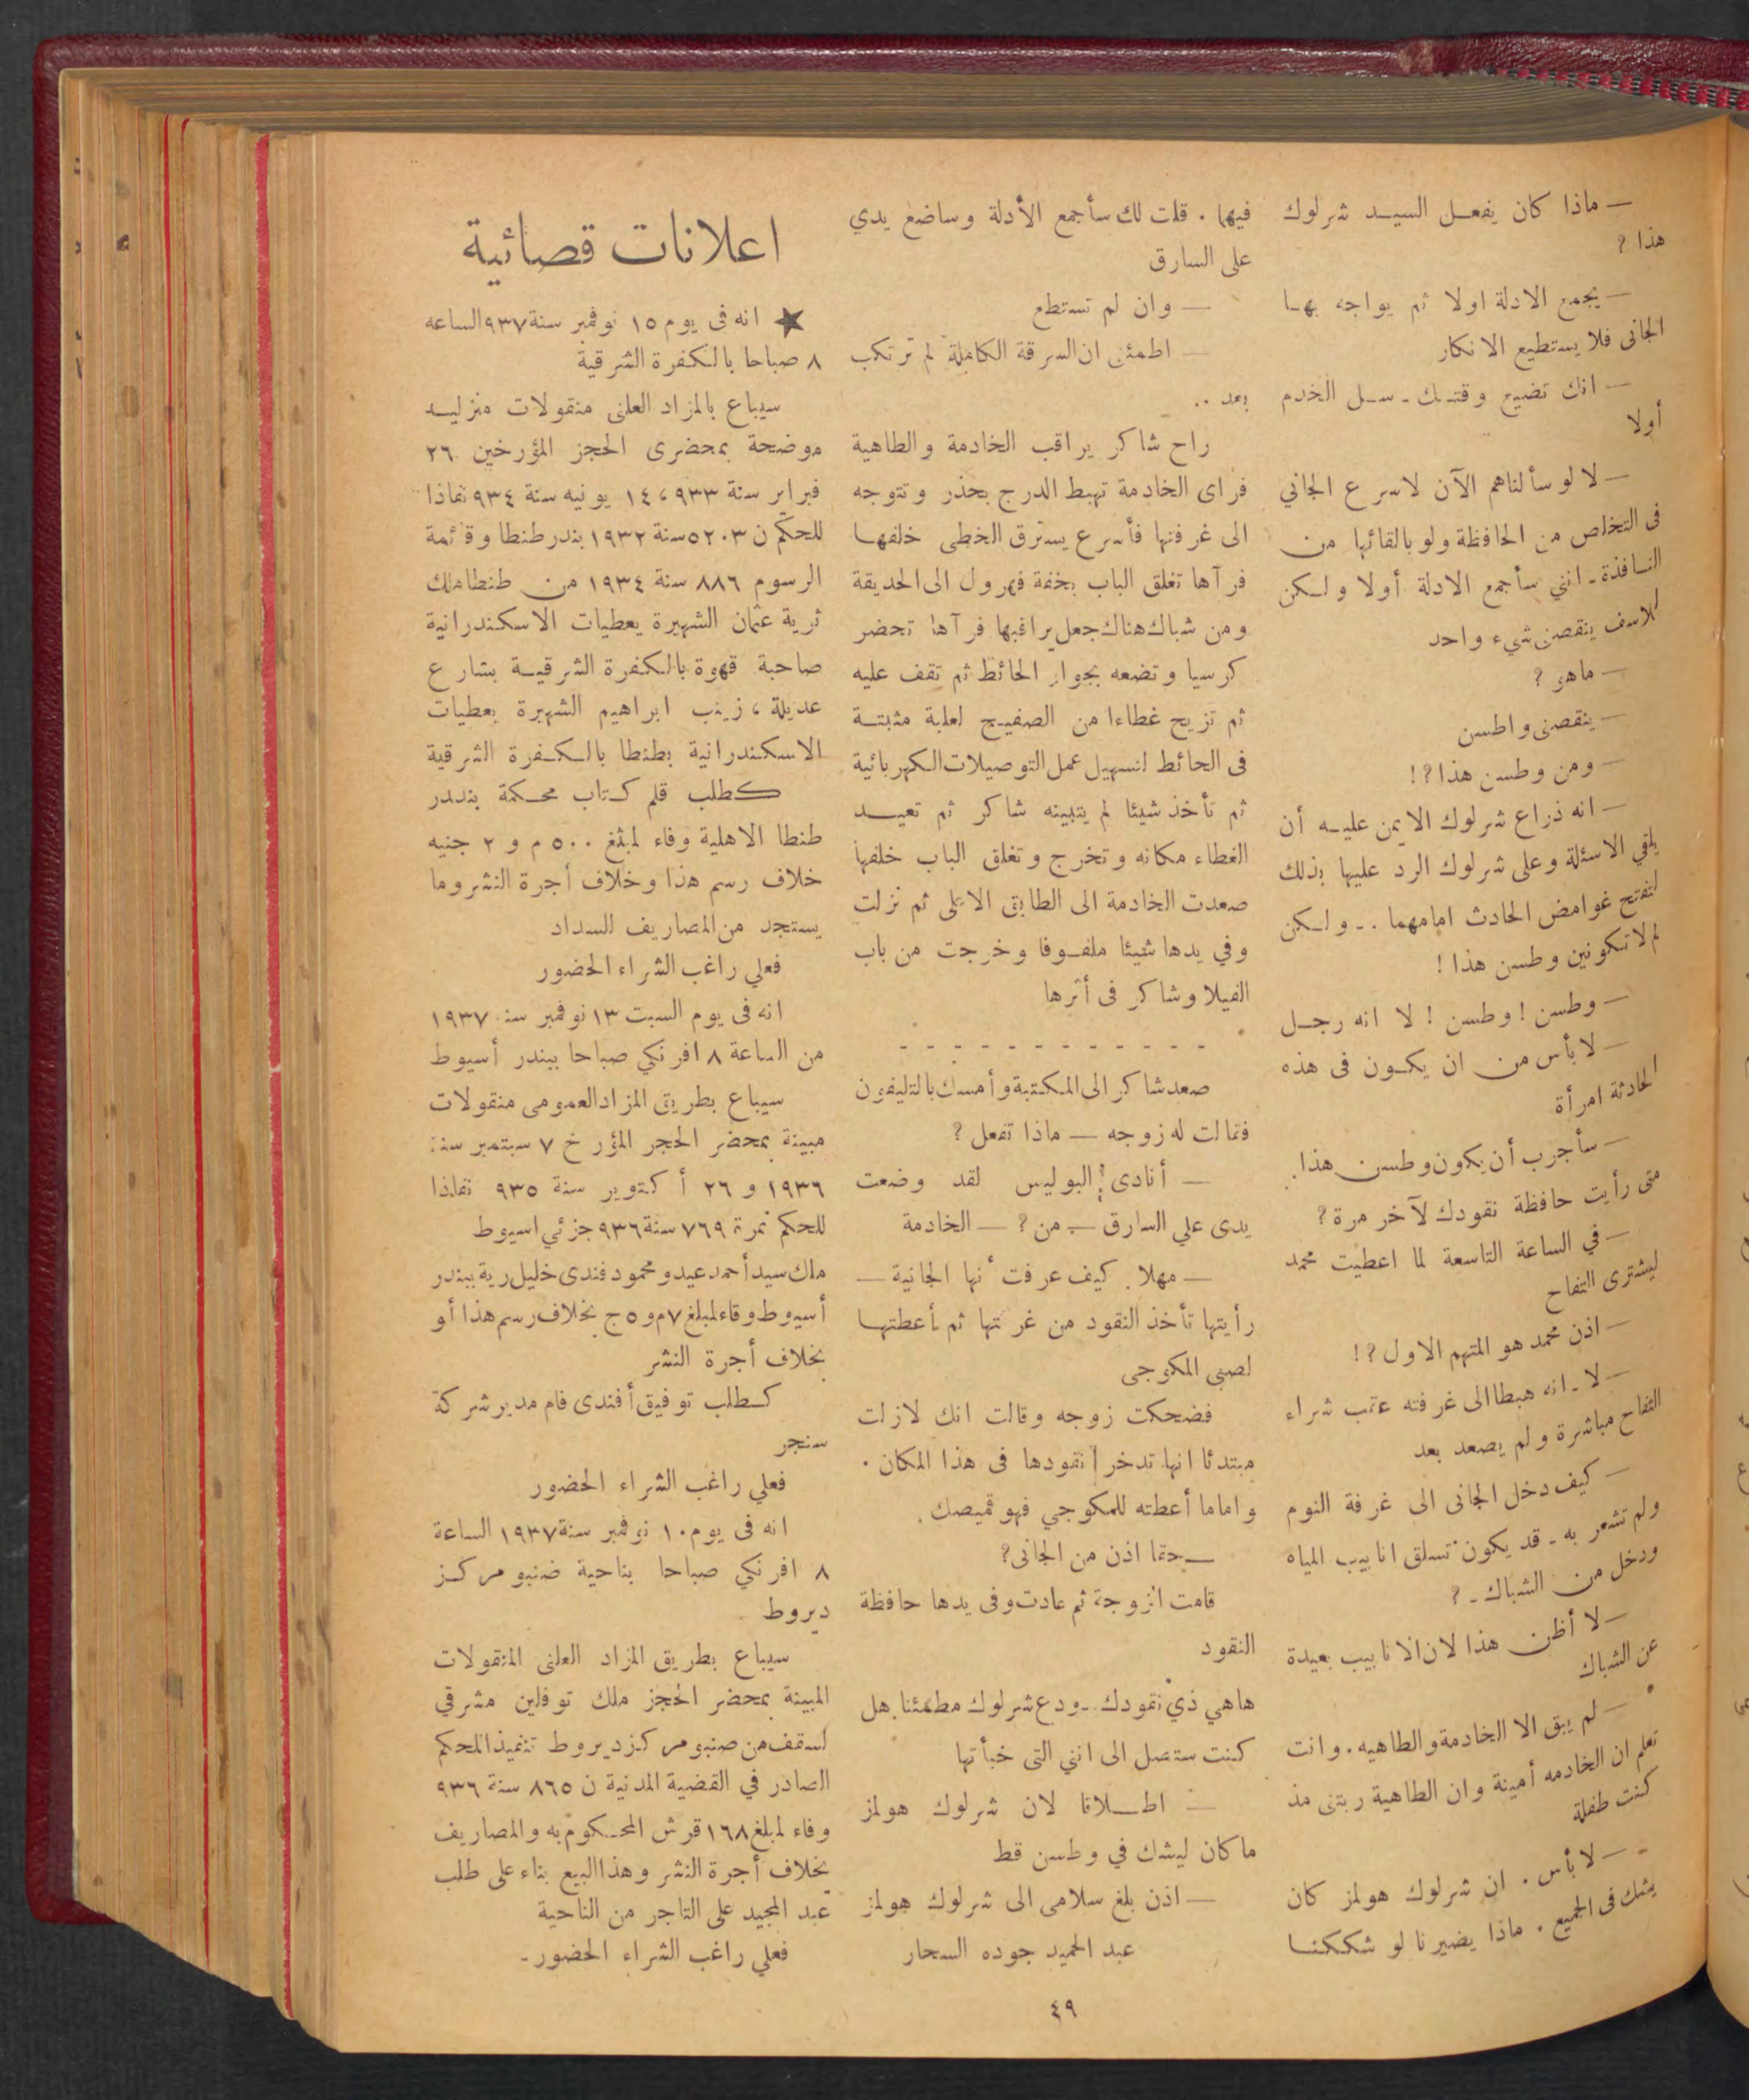 — ماذا كان يفعل السيد شرلوك
هذا ؟
— يجمع الادلة اولا ثم يواجه بها
الجانى فلا يستطيع الانكار
— انك تضيع وقتك ـ سل الخدم
أولا
— لا لو سألناهم الآن لاسرع الجاني
فى التخلص من الحافظة ولو بالقائها من
النافذة ـ انني سأجمع الادلة أولا ولكن
للاسف ينقصنى شيء واحد
— ماهو ؟
— ينقصنى واطسن
— ومن وطسن هذا ؟!
— انه ذراع شرلوك الايمن عليه أن
يلقي الاسئلة وعلى شرلوك الرد عليها بذلك
لتفتح غوامض الحادث امامهما .. ولكن
لم لا تكونين وطسن هذا !
— وطسن ! وطسن ! لا انه رجل
— لا بأس من ان يكون فى هذه
الحادثة امرأة
— سأجرب أن يكون وطسن هذا .
متى رأيت حافظة نقودك لآخر مرة ؟
— في الساعة التاسعة لما اعطيت محمد
ليشترى التفاح
— اذن محمد هو المتهم الاول ؟!
— لا ـ انه هبط الى غرفته عقب شراء
التفاح مباشرة ولم يصعد بعد
— كيف دخل الجانى الى غرفة النوم
ولم تشعر به ـ قد يكون تسلق انابيب المياه
ودخل من الشباك ـ ؟
— لا أظن هذا لان الانابيب بعيدة
عن الشباك
— لم يبق الا الخادمة والطاهيه . وانت
تعلم ان الخادمه أمينة وان الطاهية ربتنى مذ
كنت طفلة
— لا بأس . ان شرلوك هولمز كان
يشك فى الجميع . ماذا يضيرنا لو شككنا
فيهما . قلت لك سأجمع الأدلة وساضع يدي
على السارق
— وان لم تستطع
— اطمئنى ان السرقة الكاملة لم ترتكب
بعد ..
راح شاكر يراقب الخادمة والطاهية
فراى الخادمة تهبط الدرج بحذر وتتوجه
الى غرفتها فأسرع يسترق الخطى خلفها
فرآها تغلق الباب بخفة فهرول الى الحديقة
ومن شباك هناك جعل يراقبها فرآها تحضر
كرسيا وتضعه بجوار الحائط ثم تقف عليه
ثم تزيح غطاءا من الصفيح لعلبة مثبتة
فى الحائط لتسهيل عمل التوصيلات الكهربائية
ثم تأخذ شيئا لم يتبينه شاكر ثم تعيد
الغطاء مكانه وتخرج وتغلق الباب خلفها
صعدت الخادمة الى الطابق الاعلى ثم نزلت
وفي يدها شيئا ملفوفا وخرجت من باب
الفيلا وشاكر فى أثرها
- - - - - - - - - - - -
صعد شاكر الى المكتبة وأمسك بالتليفون
فقالت له زوجه — ماذا تفعل ؟
— أنادى البوليس لقد وضعت
يدى علي السارق — من ؟ — الخادمة
— مهلا . كيف عرفت أنها الجانية —
رأيتها تأخذ النقود من غرفتها ثم أعطتها
لصبى المكوجى
فضحكت زوجه وقالت انك لازلت
مبتدئا انها تدخر نقودها فى هذا المكان .
واما ما أعطته للمكوجي فهو قميصك .
— حقا اذن من الجانى ؟
قامت الزوجة ثم عادت وفى يدها حافظة
النقود
هاهي ذي نقودك ـ ودع شرلوك مطمئنا . هل
كنت ستصل الى انني التى خبأتها
— اطلاقا لان شرلوك هولمز
ما كان ليشك في وطسن قط
— اذن بلغ سلامى الى شرلوك هولمز
عبد الحميد جوده السحار
اعلانات قضائية
★ انه فى يوم ١٥ نوفمبر سنة ٩٣٧ الساعه
٨ صباحا بالكفرة الشرقية
سيباع بالمزاد العلنى منقولات منزليه
موضحة بمحضرى الحجز المؤرخين ٢٦
فبراير سنة ٩٣٣ ، ١٤ يونيه سنة ٩٣٤ نفاذا
للحكم ن ٥٢٠٣ سنة ١٩٣٢ بندر طنطا وقائمة
الرسوم ٨٨٦ سنة ١٩٣٤ من طنطا ملك
ثرية عثمان الشهيرة بعطيات الاسكندرانية
صاحبة قهوة بالكفرة الشرقية بشارع
عديلة ، زينب ابراهيم الشهيرة بعطيات
الاسكندرانية بطنطا بالكفرة الشرقية
كطلب قلم كتاب محكمة بندر
طنطا الاهلية وفاء لمبلغ ٥٠٠ م و ٢ جنيه
خلاف رسم هذا وخلاف أجرة النشر وما
يستجد من المصاريف السداد
فعلي راغب الشراء الحضور
انه فى يوم السبت ١٣ نوفمبر سنة ١٩٣٧
من الساعة ٨ افرنكي صباحا ببندر أسيوط
سيباع بطريق المزاد العمومى منقولات
مبينة بمحضر الحجز المؤرخ ٧ سبتمبر سنة
١٩٣٦ و ٢٦ أكتوبر سنة ٩٣٥ نفاذا
للحكم نمرة ٧٦٩ سنة ٩٣٦ جزئي اسيوط
ملك سيد أحمد عيد ومحمود فندى خليل رية ببندر
أسيوط وفاء لمبلغ ٧ م و ٥ ج بخلاف رسم هذا أو
بخلاف أجرة النشر
كطلب توفيق أفندى فام مدير شركة
سنجر
فعلي راغب الشراء الحضور
انه فى يوم ١٠ نوفمبر سنة ١٩٣٧ الساعة
٨ افرنكي صباحا بناحية صنبو مركز
ديروط
سيباع بطريق المزاد العلنى المنقولات
المبينة بمحضر الحجز ملك توفلين مشرقي
اسقف من صنبو مركز ديروط تنفيذا لمحكم
الصادر في القضية المدنية ن ٨٦٥ سنة ٩٣٦
وفاء لمبلغ ١٦٨ قرش المحكوم به والمصاريف
بخلاف أجرة النشر وهذا البيع بناء على طلب
عبد المجيد على التاجر من الناحية
فعلي راغب الشراء الحضور -
٤٩